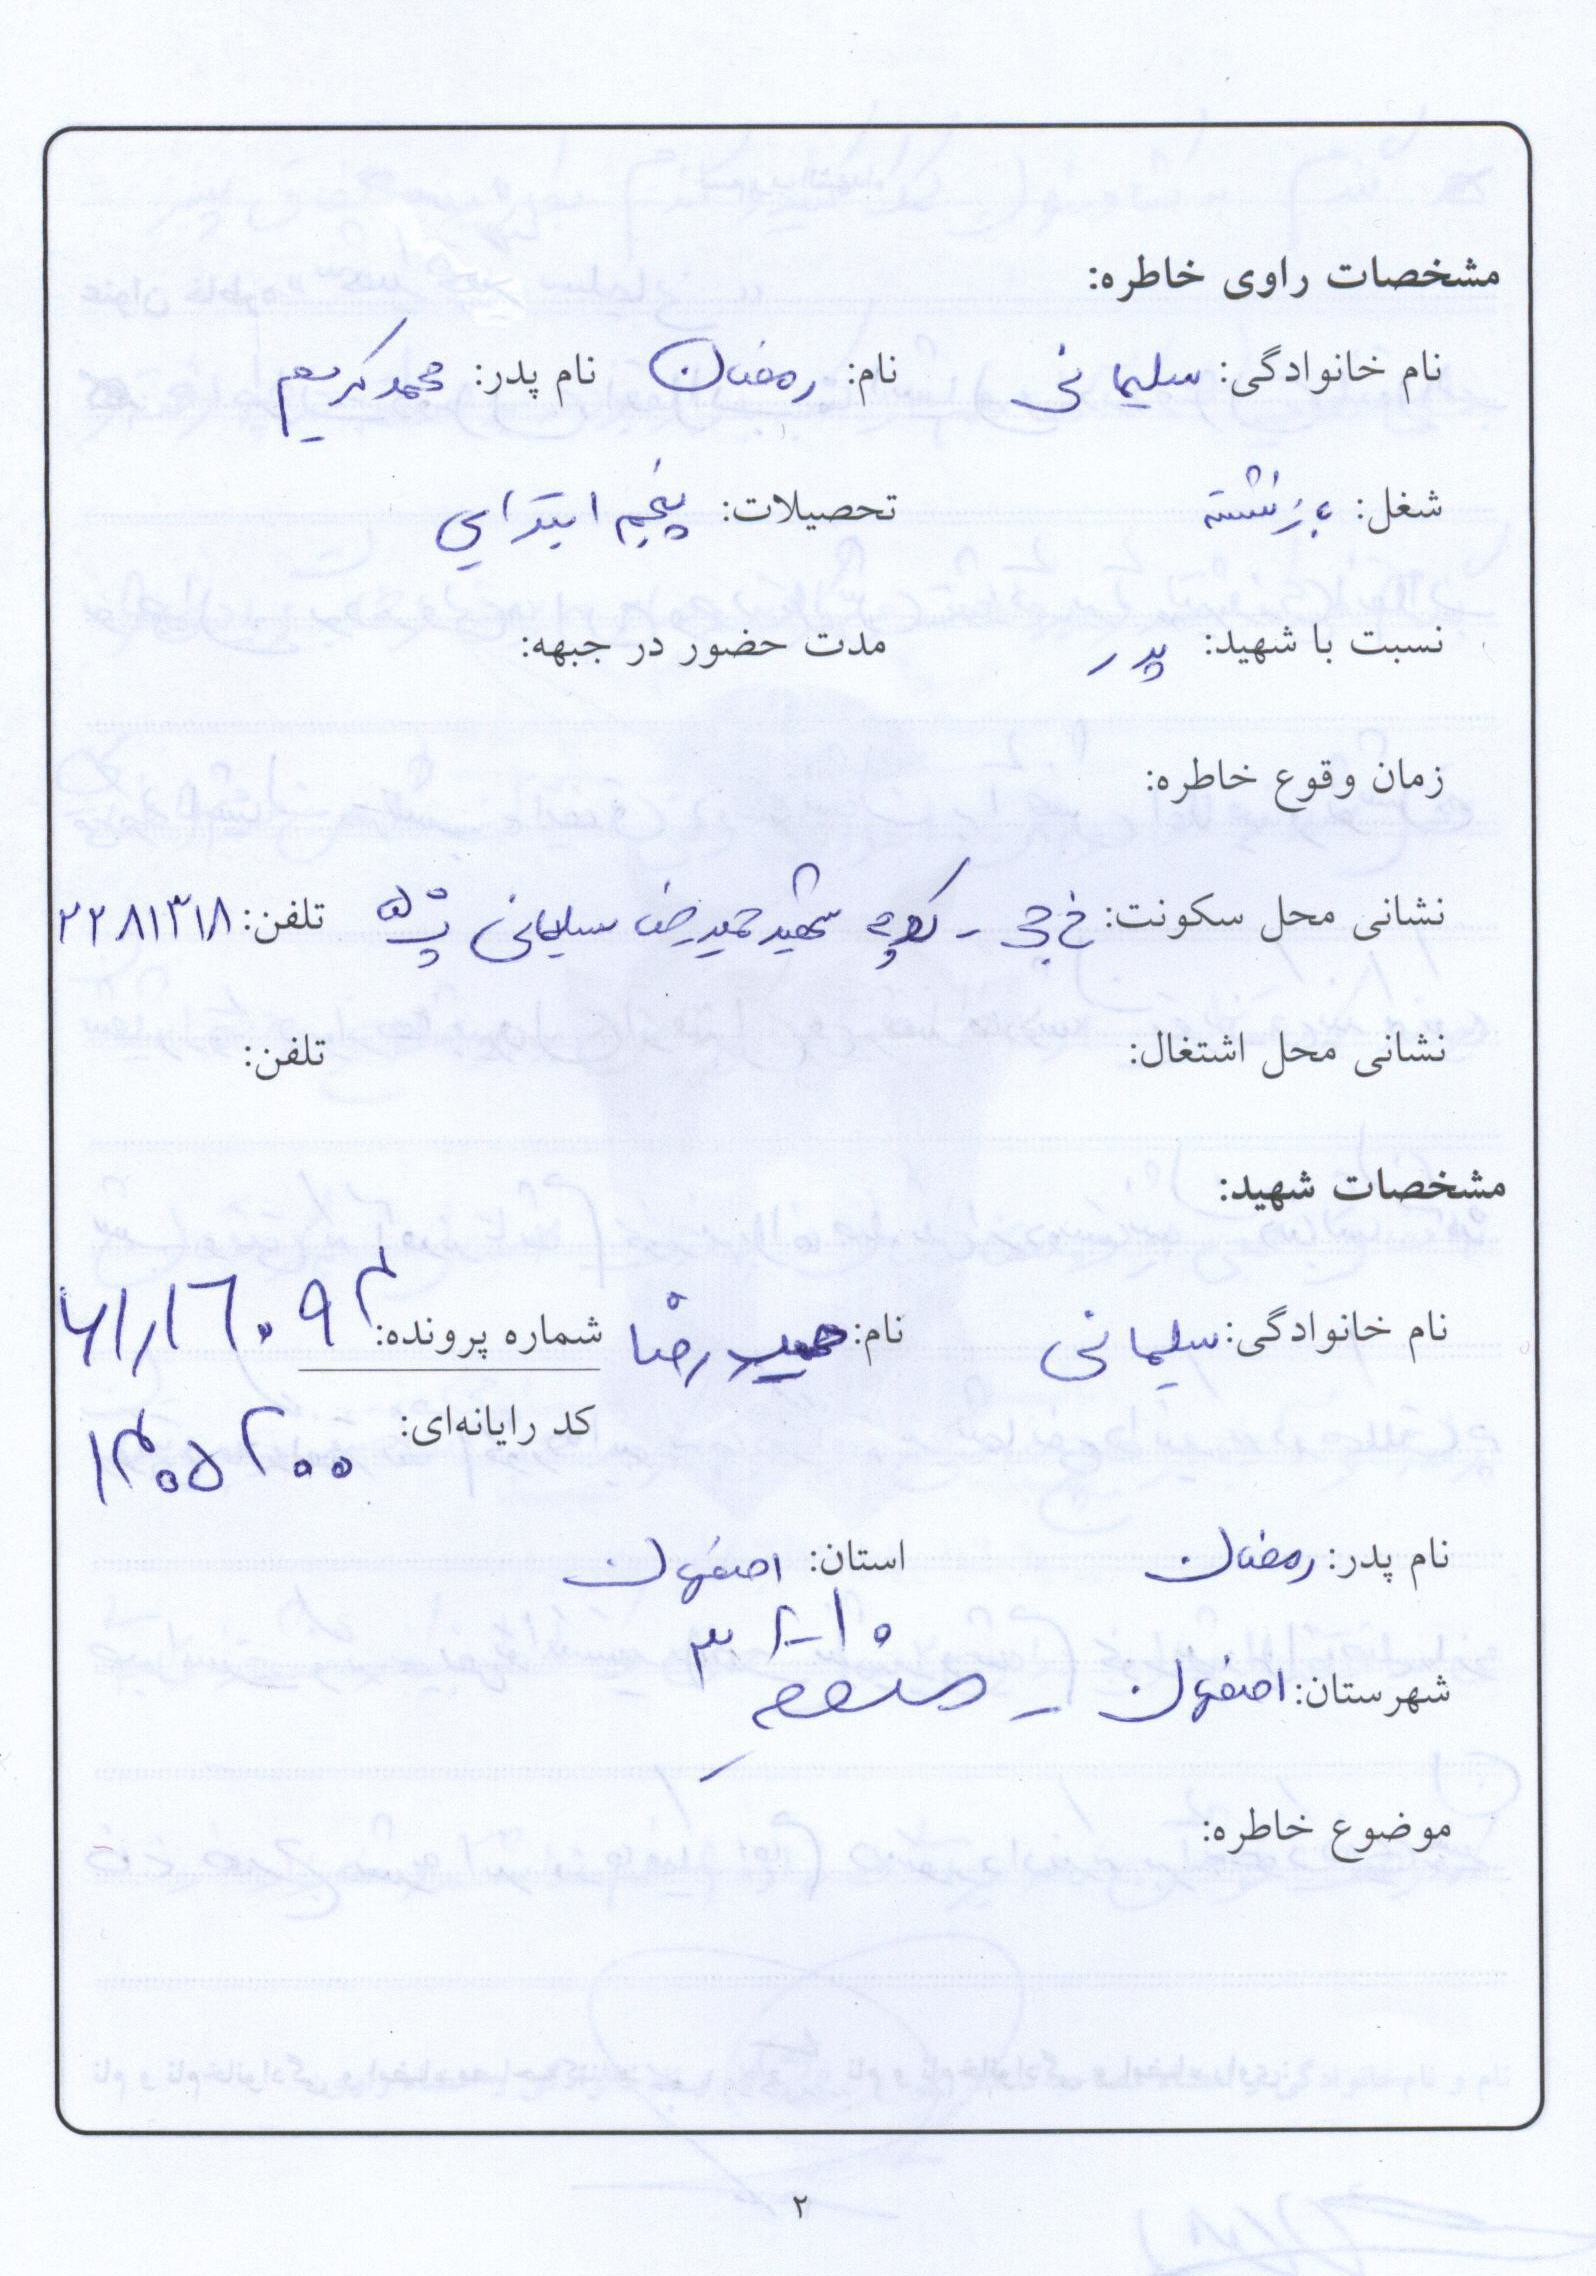 مشخصات راوی خاطره:
نام خانوادگی: سلیمانی نام: رمضان نام پدر: محمد کریم
شغل: بازنشسته تحصیلات: پنجم ابتدایی
نسبت با شهید: پدر مدت حضور در جبهه:
زمان وقوع خاطره:
نشانی محل سکونت: خ جی - کوچه شهید حمیدرضا سلیمانی تلفن: ۲۲۸۱۳۱۸
نشانی محل اشتغال: تلفن:
مشخصات شهید:
نام خانوادگی: سلیمانی نام: حمید رضا شماره پرونده:
کد رایانه‌ای: ۱۳۰۵۲۰۰
نام پدر: رمضان استان: اصفهان
شهرستان: اصفهان - منطقه ۳
موضوع خاطره:
۲